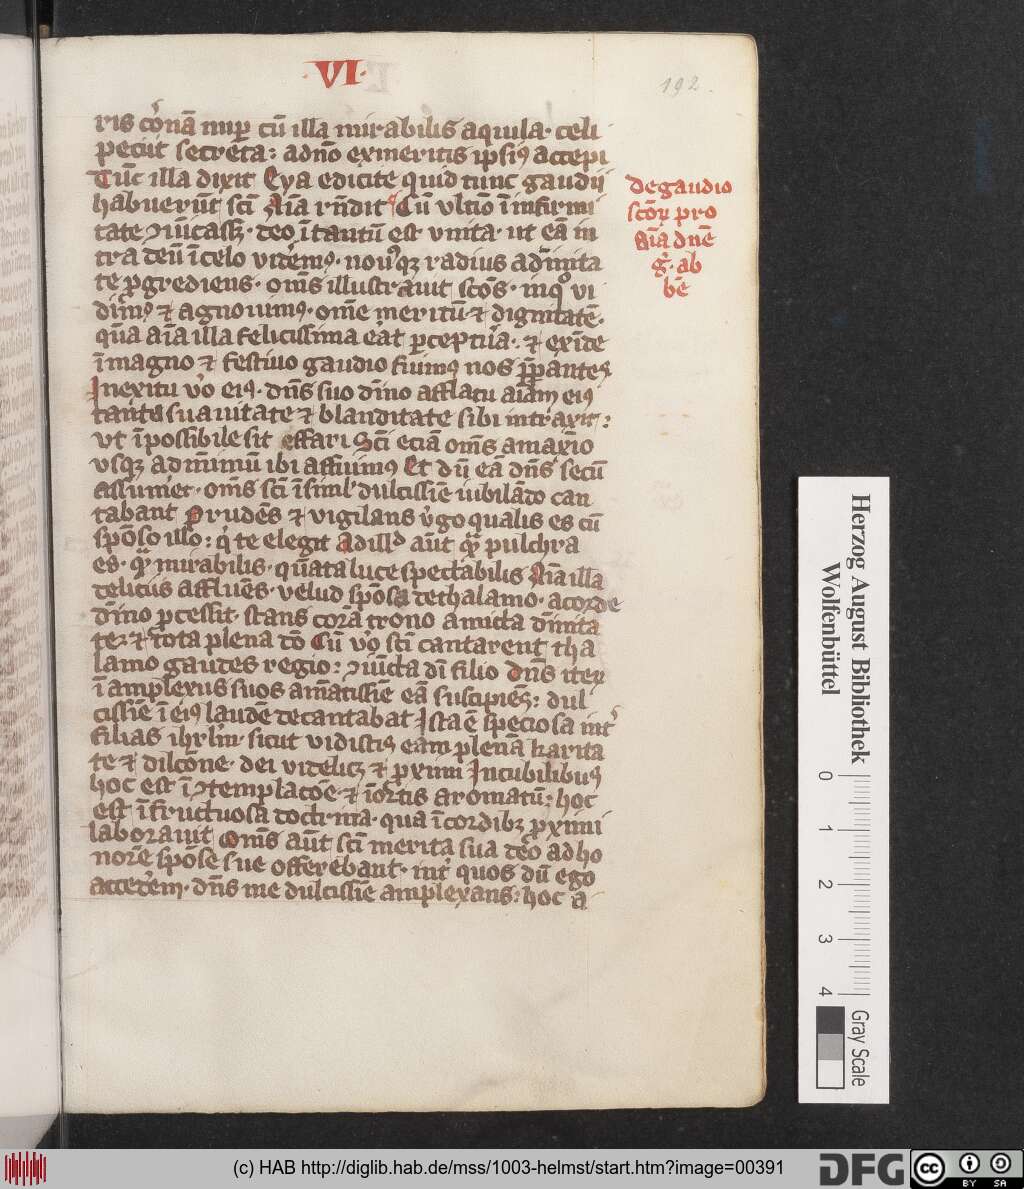 ·VI·
192.
ris cōnā nup̄ cū illa mirabilis aquila· celi
peciit secreta: a dño ex meritis ipsiꝰ accepi
Tūc illa dixit Eya edicite quid tunc gaudij
habuerūt scī Aīa rn̄dit Cū vltīo ī infirmi
tate deo ītantū est vnita· ut eā in
tra deū ī celo viderēmꝰ· nouꝰqꝫ radius a diuīnita
te ꝓgrediens· omēs illustrauit scōs· in quo vi
dimꝰ ⁊ agnouimꝰ· om̄e meritū ⁊ dignitatē·
quā aīa illa felicissima erat ꝑceptura·⁊ exīde
ī magno ⁊ festiuo gaudio fiuimꝰ nos p̄pantes
In exitu vo eiꝰ· dn̄s suo diuīno afflatu aīam eiꝰ
tanta suauitate ⁊ blanditate sibi intraxit:
vt īpossibile sit effari Scī eciā om̄s a maxīo
vsqꝫ ad minimū ibi affuimꝰ Et dū eā dn̄s secū
assumer̄et· om̄s scī ī simul dulcissīe iubilādo can
tabant Prudēs ⁊ vigilans v̓go qualis es cū
spōso illo: q̓ te elegit Ad illd aūt q̄ꝫ pulchra
es· q̄ꝫ mirabilis· quāta luce spectabilis Aīa illa
delicijs affluēs· velud spōsa de thalamo· a corde
diuīno ꝓcessit· stans corā trono amicta diuīnita
te· ⁊ tota plena dō Cū vo scī cantarent tha
lamo gaudes regio: ꝯiūcta dī filio dn̄s iteꝝ
ī amplexus suos amātissīe eā suscipiēs: dul
cissīe ī eiꝰ laudē decantabat Ista ē speciosa int̓
filias ihrl̄m· sicut vidistis eam plenā karita
te ⁊ dilcōne· dei videlicꝫ ⁊ ꝓximi In cubilibuꝰ
hoc est ī ꝯtemplacōe· ⁊ ī ortis aromatū: hoc
est ī fructuosa doctrina· qua ī cordibꝫ ꝓximi
laborauit Om̄s aūt scī merita sua deo ad ho
norē spōse sue offerebant· int̓ quos dū ego
accederem· dn̄s me dulcissīe amplexans: hoc a
de gaudio
scōꝝ pro
aīa dn̄e
g̓· ab
bē
Herzog August Bibliothek
Wolfenbüttel
0 1 2 3 4
Gray Scale
(c) HAB http://diglib.hab.de/mss/1003-helmst/start.htm?image=00391
DFG
cc BY SA